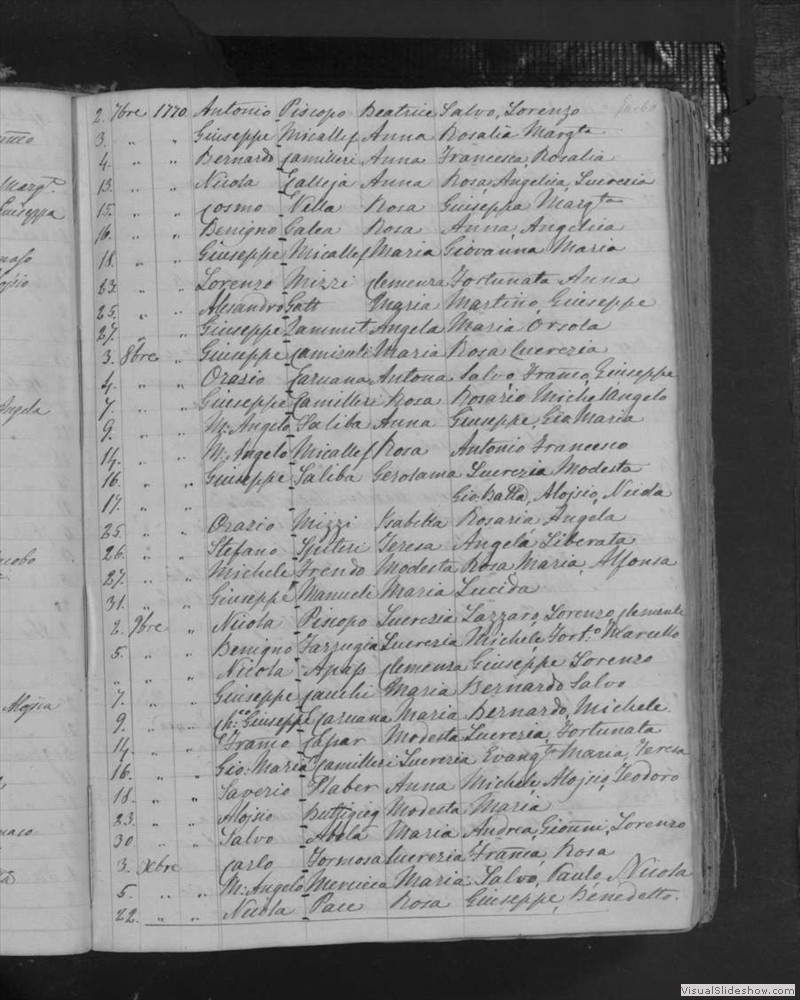 2. 7bre 1770. Antonio Piscopo Beatrice Salvo, Lorenzo
3. " " Giuseppe Micallef Anna Rosalia Margta
4. " " Bernardo Camilleri Anna Francesca, Rosalia
13. " " Nicola Calleja Anna Rosa, Angelica, Lucrezia
15. " " Cosmo Vella Rosa Giuseppa Margta
16. " " Benigno Galea Rosa Anna, Angelica
18. " " Giuseppe Micallef Maria Giovanna Maria
23. " " Lorenzo Mizzi Clemenza Fortunata Anna
25. " " Alesandro Gatt Maria Martino, Giuseppe
27. " " Giuseppe Zammet Angela Maria Orsola
3. 8bre " Giuseppe Maria Rosa Lucrezia
4. " " Orazio Caruana Antona Salvo Franco, Giuseppe
7. " " Giuseppe Camilleri Rosa Rosario Michelangelo
9. " " M: Angelo Saliba Anna Giuseppe, Gio Maria
14. " " M: Angelo Micallef Rosa Antonio Francesco
16. " " Giuseppe Saliba Gerolama Lucrezia Modesta
17. " " Gio: Batta, Alojsio, Nicola
25. " " Orazio Mizzi Isabella Rosaria Angela
26. " " Stefano Spiteri Teresa Angela Liberata
27. " " Michele Frendo Modesta Rosa Maria, Alfonsa
31. " " Giuseppe Manueli Maria Lucida
2. 9bre " Nicola Piscopo Lucrezia Lazzaro, Lorenzo, Clemente
5. " " Benigno Farrugia Lucrezia Michele, Fort:o Marcello
" " " Nicola Apap Clemenza Giuseppe Lorenzo
7. " " Giuseppe Cauchi Maria Bernardo Salvo
9. " " Giuseppe Caruana Maria Bernardo, Michele
14. " " Franco Caspar Modesta Lucrezia, Fortunata
16. " " Gio: Maria Camilleri Lucrezia Evangta Maria, Teresa
18. " " Saverio Haber Anna Michele Alojsio, Teodoro
23. " " Alojsio Buttigieg Modesta Maria
30 " " Salvo Abela Maria Andrea Gionni, Lorenzo
3. Xbre " Carlo Formosa Lucrezia Franca Rosa
5. " " M: Angelo Mercieca Maria Salvo, Paulo, Nicola
22. " " Nicola Pace Rosa Giuseppe, Benedetto.
VisualSlideshow.com